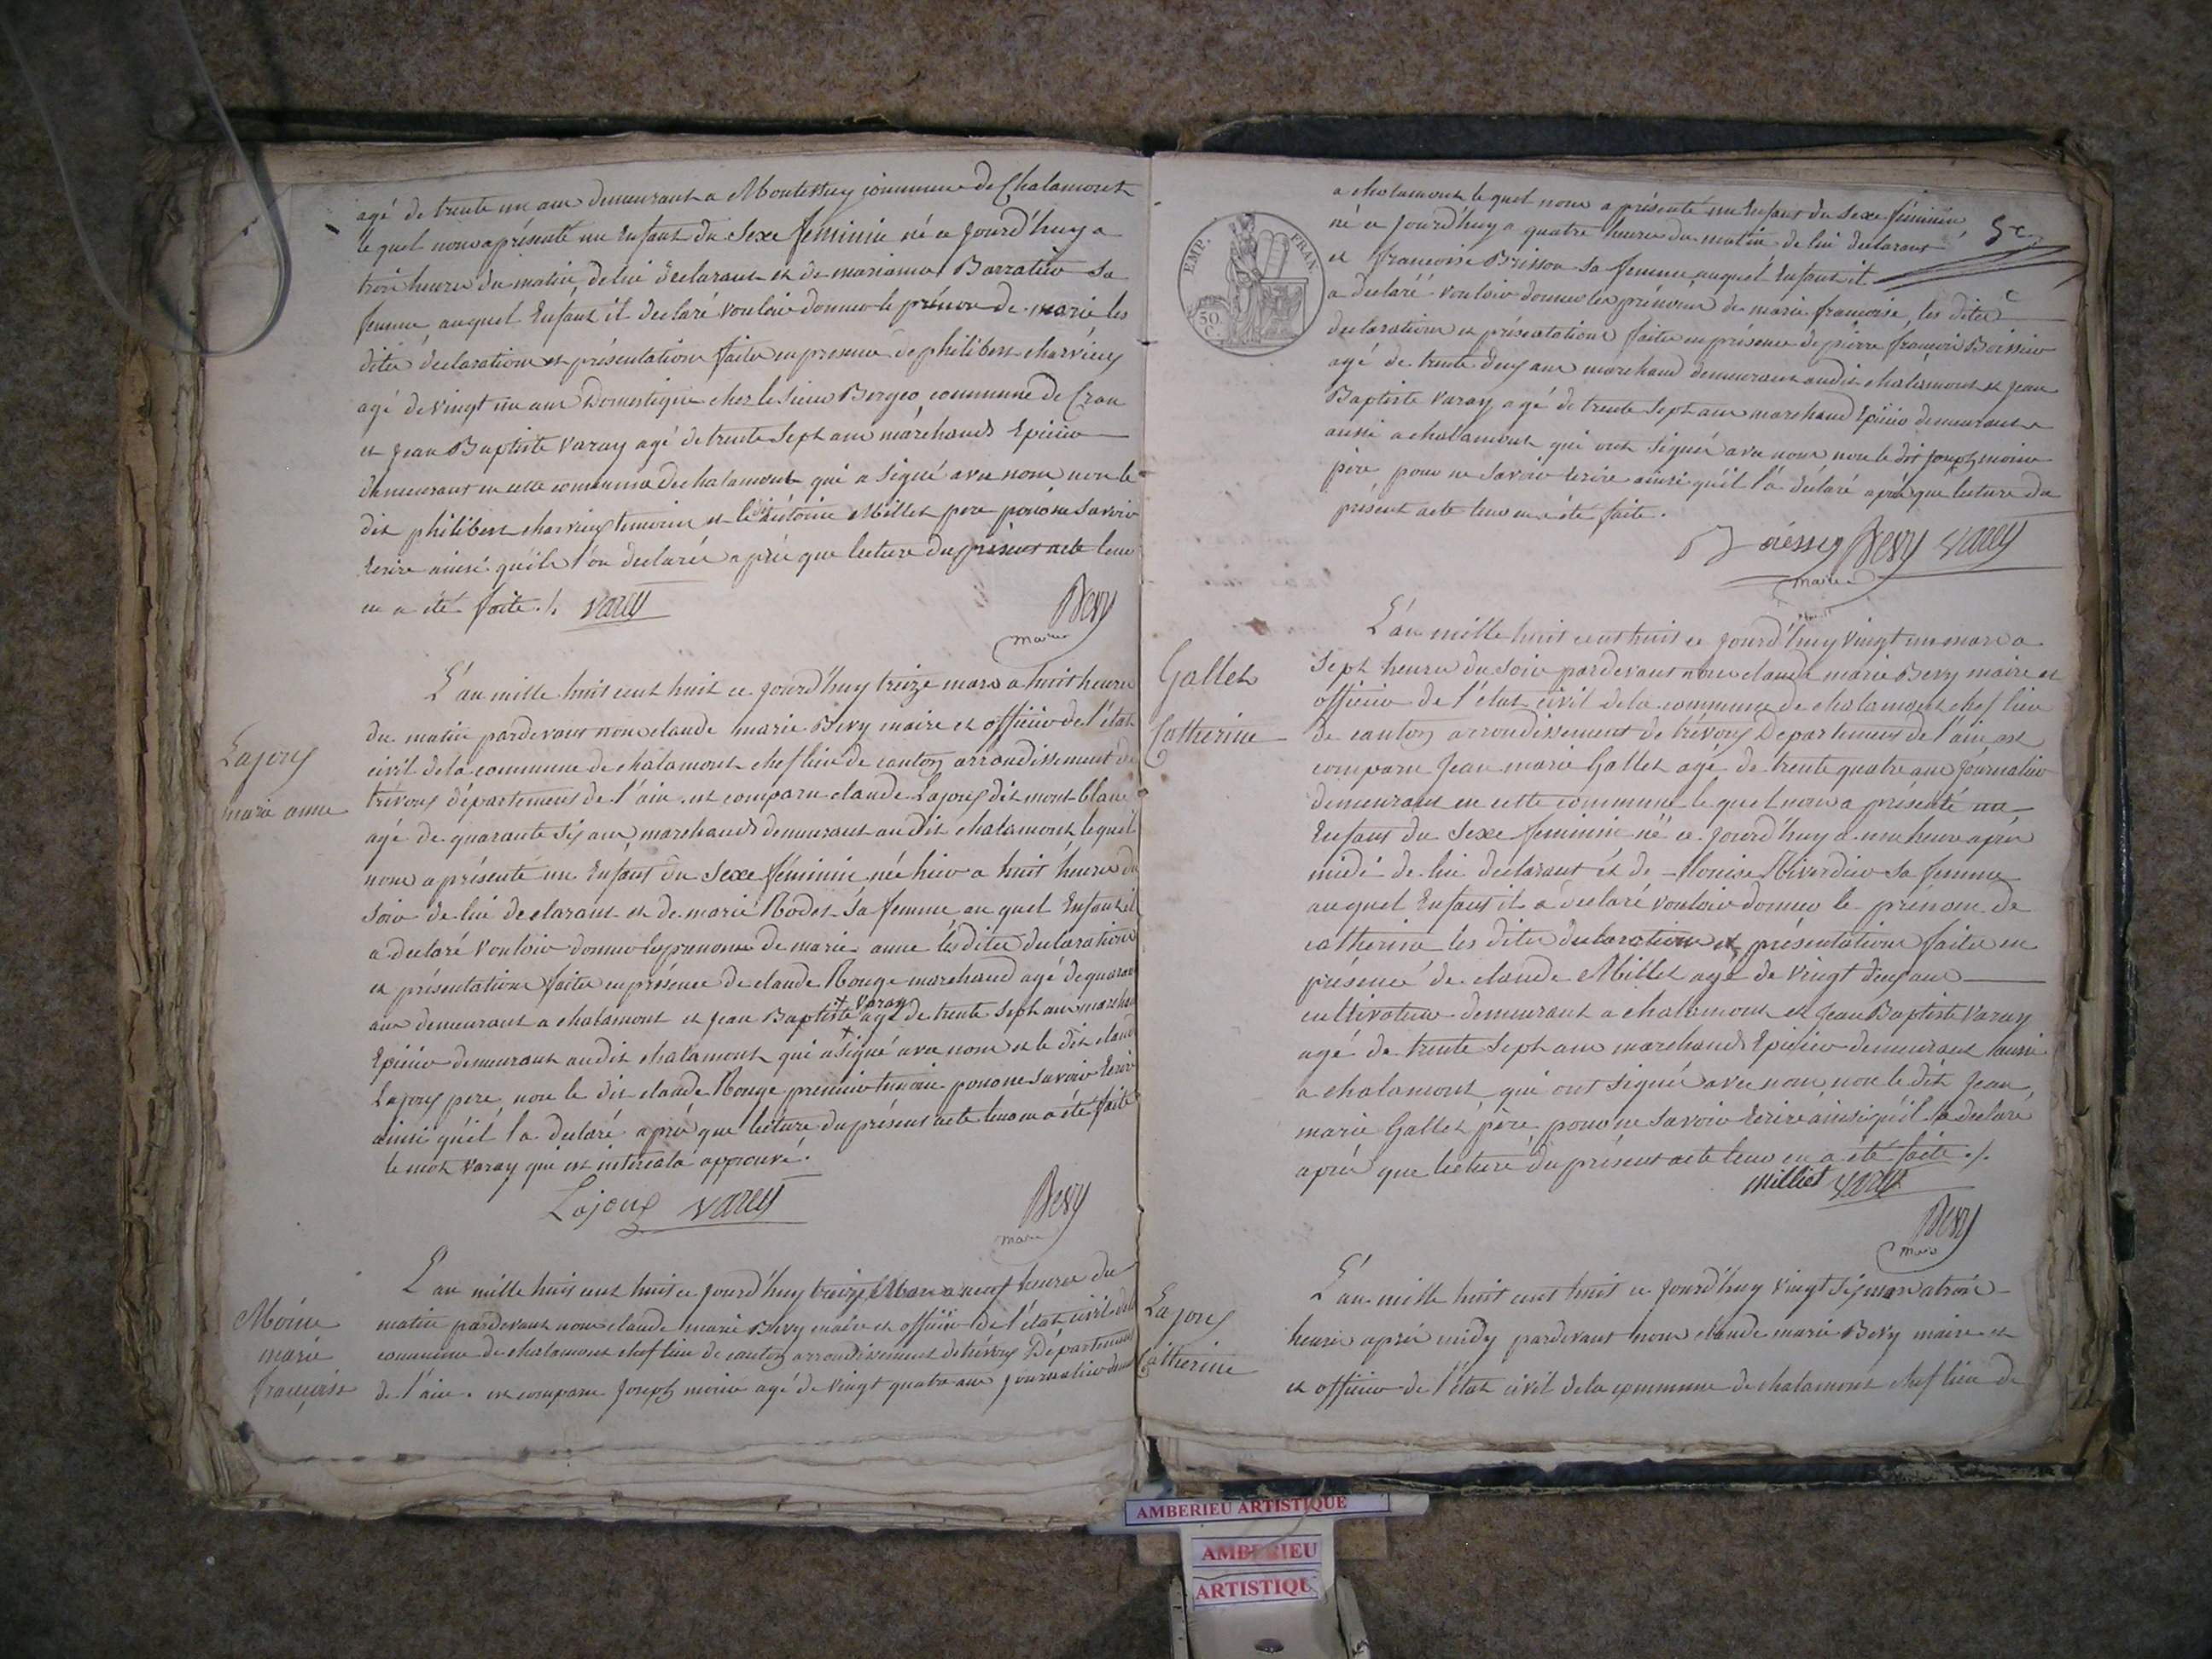 agé de trente un ans demeurant a Montessuy commune de Chalamont
le quel nous a présenté un Enfant du Sexe féminin né ce jourd'huy a
trois heures du matin de lui declarant et de mariame Barratier sa
femme auquel Enfant il declaré vouloir donner le prénom de marie les
dites déclaration et présentation faites en presence de philibert charvieux
agé de vingt un ans Domestique chez le sieur Berger commune de Cran
et Jean Baptiste Varay agé de trente Sept ans marchand Epicier
demeurant en cette commune de chalamont qui a Signé avec nous non le
dit philibert charvieux temoin et le dit antoine Millet pere pour ne Savoir
Ecrire ainsi qu'ils l'on declarés après que lecture du présent acte leur
en a été faite ./. Varay
Bevy
maire
L'an mille huit cent huit ce jourd'huy treize mars a huit heures
du matin pardevant nous claude marie Bevy maire et officier de l'état
civil de la commune de chalamont chef lieu de canton arrondissement de
trévoux département de l'ain est comparu claude Lajoux dit mont-blanc
agé de quarante six ans marchand demeurant au dit chalamont lequel
nous a présenté un Enfant du Sexe féminin née hier a huit heures du
Soir de lui declarant et de marie Rodet Sa femme au quel Enfant il
a declaré vouloir donner les prenoms de marie anne les dites declaration
et présentation faites en présence de claude Rouge marchand agé de quarante
ans demeurant a chalamont et Jean Baptiste + Varay agé de trente Sept ans marchand
Epicier demeurant au dit chalamont qui a Signé avec nous et le dit claude
Lajoux pere non le dit claude Rouge premier temoin pour ne savoir Ecrire
ainsi qu'il l'a declaré après que lecture du présent acte leur en a été faite
le mot Varay qui est intercala approuvé.
Lajoux Varay
Bevy
maire
Lajoux
marie anne
L'an mille huit cent huit ce jourd'huy treize Mars a neuf heures du
matin pardevant nous claude marie Bevy maire et officier de l'état civil de la
commune de chalamont chef lieu de canton arrondissement de trévoux Département
de l'ain. est comparu Joseph moine agé de vingt quatre ans journalier demeurant
Moine
marie
françoise
a chalamont le quel nous a présenté un Enfant du Sexe féminin
né ce jourd'huy a quatre heures du matin de lui declarant
et francoise Brisson sa femme auquel Enfant il
a declaré vouloir donner les prénoms de marie francoise, les dites
declaration et présentation faites en présence de pierre françois Boissieu
agé de trente deux ans marchand demeurant audit chalamont et Jean
Baptiste Varay agé de trente Sept ans marchand Epicier demeurant
aussi a chalamont qui ont signés avec nous non le dit Joseph moine
père pour ne Savoir Ecrire ainsi qu'il l'a déclaré après que lecture du
présent acte leur en a été faite.
EMP. FRAN.
50
C.
Bevy Varay
maire
Gallet
Catherine
L'an mille huit cent huit ce jourd'huy vingt un mars a
Sept heures du Soir pardevant nous claude marie Bevy maire et
officier de l'état civil de la commune de chalamont chef lieu
de canton arrondissement de trévoux Departement de l'ain est
comparu Jean marie Gallet agé de trente quatre ans journalier
demeurant en cette commune le quel nous a présenté un
Enfant du Sexe féminin né ce jourd'huy a une heure après
midi de lui declarant et de Louise Riverdier sa femme
auquel Enfant il a declaré vouloir donner le prénom de
catherine les dites declaration et présentation faites en
présence de claude Millet agé de vingt deux ans
cultivateur demeurant a chalamont et Jean Baptiste Varay
agé de trente Sept ans marchand Epicier demeurant aussi
a chalamont qui ont signés avec nous non le dit Jean
marie Gallet père pour ne Savoir Ecrire ainsi qu'il l'a declaré
après que lecture du présent acte leur en a été faite ./.
Milliet Varay
Bevy
maire
Lajoux
Catherine
L'an mille huit cent huit ce jourd'huy vingt six mars a trois
heures après midy pardevant nous claude marie Bevy maire et
et officier de l'état civil de la commune de chalamont chef lieu de
AMBERIEU ARTISTIQUE
AMBERIEU
ARTISTIQU